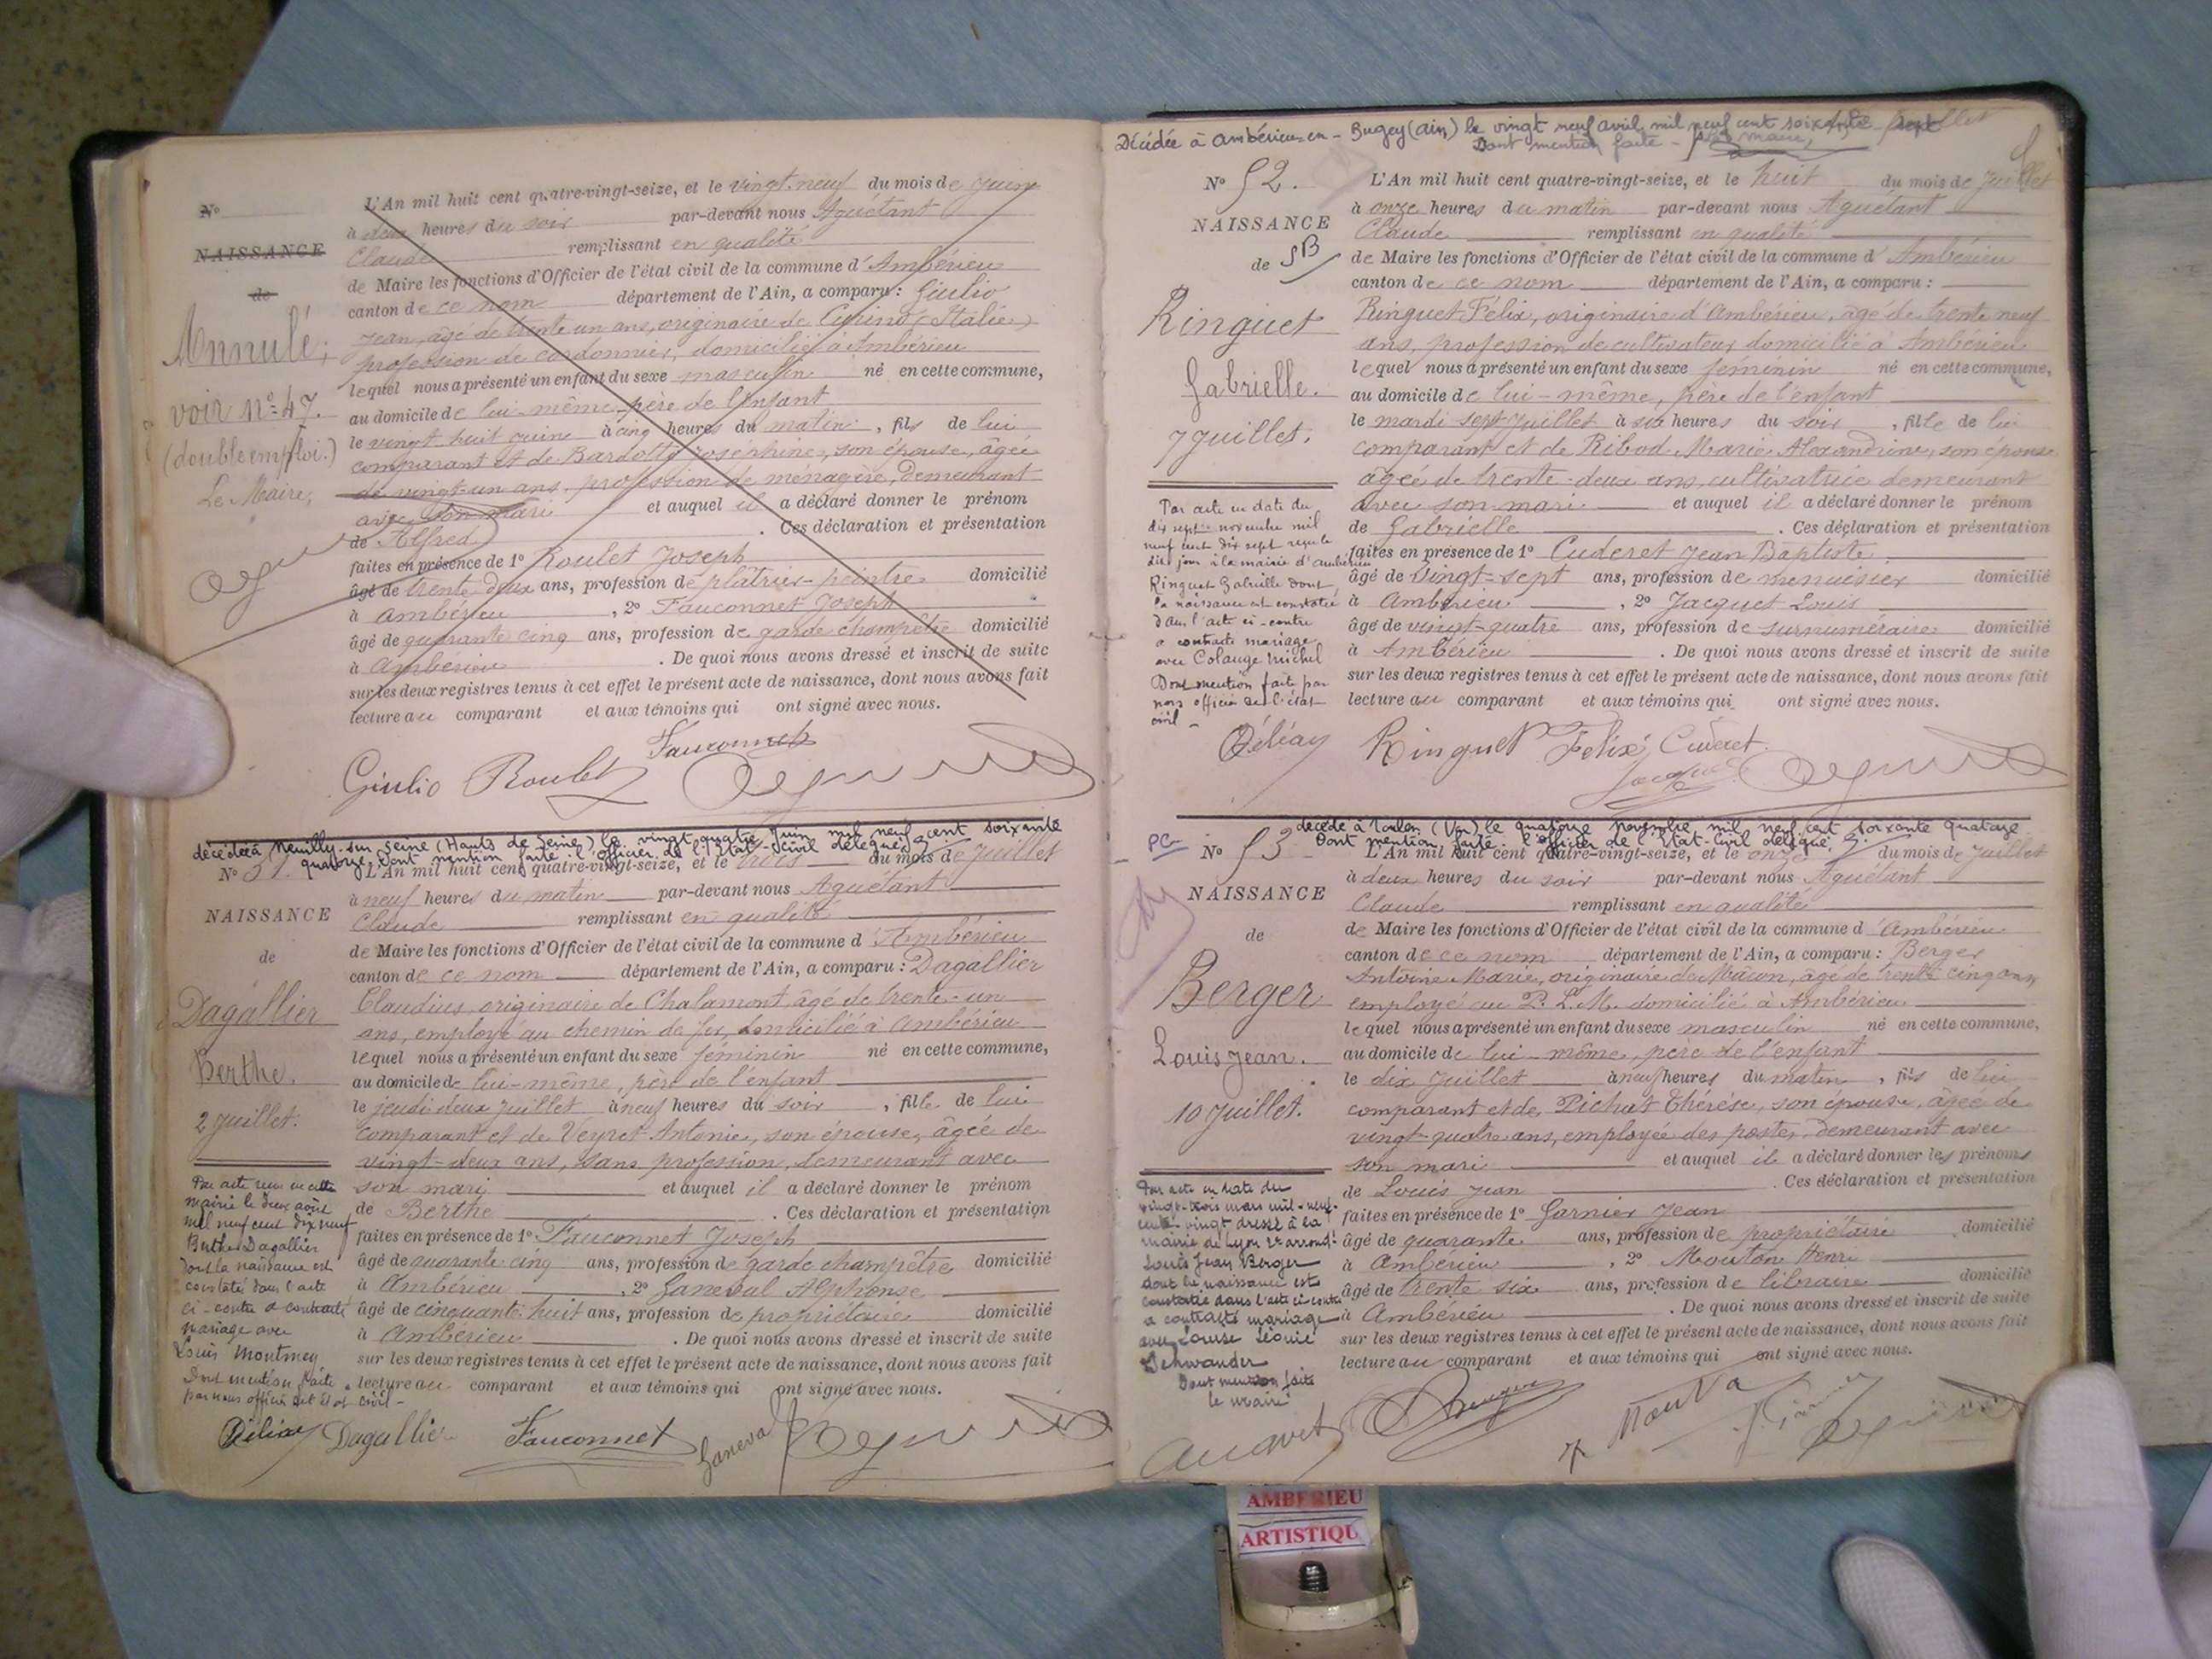 N°
NAISSANCE
de
Annulé;
voir n° 47.
(double emploi.)
Le Maire,
L'An mil huit cent quatre-vingt-seize, et le vingt-neuf du mois de Juin
à deux heures du soir par-devant nous Aguétant
Claude remplissant en qualité
de Maire les fonctions d'Officier de l'état civil de la commune d'Ambérieu
canton de ce nom département de l'Ain, a comparu : Giulio
Jean, âgé de trente un ans, originaire de (Italie)
profession de cordonnier, domicilié à Ambérieu
lequel nous a présenté un enfant du sexe masculin né en cette commune,
au domicile de lui-même, père de l'enfant
le vingt huit juin à cinq heures du matin, fils de lui
comparant et de Joséphine, son épouse, âgée
de vingt-un ans, profession de ménagère, demeurant
avec son mari et auquel il a déclaré donner le prénom
de Alfred. Ces déclaration et présentation
faites en présence de 1° Roulet Joseph
âgé de trente deux ans, profession de plâtrier-peintre domicilié
à Ambérieu, 2° Fauconnet Joseph
âgé de quarante cinq ans, profession de garde champêtre domicilié
à Ambérieu. De quoi nous avons dressé et inscrit de suite
sur les deux registres tenus à cet effet le présent acte de naissance, dont nous avons fait
lecture au comparant et aux témoins qui ont signé avec nous.
Fauconnet
Giulio Roulet
décédée à Neuilly-sur-Seine (Hauts de Seine) le vingt-quatre Juin mil neuf cent soixante
quatorze dont mention faite. l'officier de l'Etat-civil délégué
N° 51.
NAISSANCE
de
Dagallier
Berthe.
2 Juillet.
Par acte reçu en cette
mairie le deux août
mil neuf cent dix neuf
Berthe Dagallier
dont la naissance est
constatée dans l'acte
ci-contre a contracté
mariage avec
Louis Montmey
Dont mention faite
par nous officier de l'état civil -
L'An mil huit cent quatre-vingt-seize, et le trois du mois de Juillet
à neuf heures du matin par-devant nous Aguétant
Claude remplissant en qualité
de Maire les fonctions d'Officier de l'état civil de la commune d'Ambérieu
canton de ce nom département de l'Ain, a comparu : Dagallier
Claudius, originaire de Chalamont, âgé de trente-un
ans, employé au chemin de fer, domicilié à Ambérieu
lequel nous a présenté un enfant du sexe féminin né en cette commune,
au domicile de lui-même, père de l'enfant
le jeudi deux Juillet à neuf heures du soir, fille de lui
comparant et de Veyret Antonie, son épouse, âgée de
vingt-deux ans, sans profession, demeurant avec
son mari et auquel il a déclaré donner le prénom
de Berthe. Ces déclaration et présentation
faites en présence de 1° Fauconnet Joseph
âgé de quarante cinq ans, profession de garde champêtre domicilié
à Ambérieu, 2° Janeval Alphonse
âgé de cinquante huit ans, profession de propriétaire domicilié
à Ambérieu. De quoi nous avons dressé et inscrit de suite
sur les deux registres tenus à cet effet le présent acte de naissance, dont nous avons fait
lecture au comparant et aux témoins qui ont signé avec nous.
Dagallier Fauconnet Janeval
Décédée à Ambérieu-en-Bugey (Ain) le vingt neuf avril mil neuf cent soixante sept
Dont mention faite -
N° 52.
NAISSANCE
de
Ringuet
Gabrielle.
7 Juillet.
Par acte en date du
dix sept novembre mil
neuf cent dix sept reçu le
dit jour à la mairie d'Ambérieu
Ringuet Gabrielle dont
la naissance est constatée
dans l'acte ci-contre
a contracté mariage
avec Colange Michel
Dont mention faite par
nous officier de l'état
civil -
L'An mil huit cent quatre-vingt-seize, et le huit du mois de Juillet
à onze heures du matin par-devant nous Aguétant
Claude remplissant en qualité
de Maire les fonctions d'Officier de l'état civil de la commune d'Ambérieu
canton de ce nom département de l'Ain, a comparu :
Ringuet Félix, originaire d'Ambérieu, âgé de trente neuf
ans, profession de cultivateur domicilié à Ambérieu
lequel nous a présenté un enfant du sexe féminin né en cette commune,
au domicile de lui-même, père de l'enfant
le mardi sept Juillet à six heures du soir, fille de lui
comparant et de Ribod Marie Alexandrine, son épouse
âgée de trente-deux ans, cultivatrice demeurant
avec son mari et auquel il a déclaré donner le prénom
de Gabrielle. Ces déclaration et présentation
faites en présence de 1° Cuderet Jean Baptiste
âgé de vingt-sept ans, profession de menuisier domicilié
à Ambérieu, 2° Jacquet Louis
âgé de vingt-quatre ans, profession de surnuméraire domicilié
à Ambérieu. De quoi nous avons dressé et inscrit de suite
sur les deux registres tenus à cet effet le présent acte de naissance, dont nous avons fait
lecture au comparant et aux témoins qui ont signé avec nous.
Ringuet Félix Cuderet
décédé à Toulon (Var) le quatorze novembre mil neuf cent soixante quatorze
Dont mention faite. l'officier de l'Etat-Civil délégué.
PC
N° 53
NAISSANCE
de
Berger
Louis Jean.
10 Juillet.
Par acte en date du
vingt-trois mars mil-neuf-
cent-vingt dressé à la
mairie de Lyon 2e arrond.
Louis Jean Berger
dont la naissance est
constatée dans l'acte ci-contre
a contracté mariage
avec Louise Léonie
Schwander
Dont mention faite
le maire
L'An mil huit cent quatre-vingt-seize, et le onze du mois de Juillet
à deux heures du soir par-devant nous Aguétant
Claude remplissant en qualité
de Maire les fonctions d'Officier de l'état civil de la commune d'Ambérieu
canton de ce nom département de l'Ain, a comparu : Berger
Antoine Marie, originaire de Mâcon, âgé de trente cinq ans,
employé au P. L. M. domicilié à Ambérieu
lequel nous a présenté un enfant du sexe masculin né en cette commune,
au domicile de lui-même, père de l'enfant
le dix Juillet à neuf heures du matin, fils de lui
comparant et de Pichat Thérèse, son épouse, âgée de
vingt-quatre ans, employée des postes, demeurant avec
son mari et auquel il a déclaré donner les prénoms
de Louis Jean. Ces déclaration et présentation
faites en présence de 1° Garnier Jean
âgé de quarante ans, profession de propriétaire domicilié
à Ambérieu, 2° Mouton Henri
âgé de trente six ans, profession de libraire domicilié
à Ambérieu. De quoi nous avons dressé et inscrit de suite
sur les deux registres tenus à cet effet le présent acte de naissance, dont nous avons fait
lecture au comparant et aux témoins qui ont signé avec nous.
AMBERIEU
ARTISTIQU